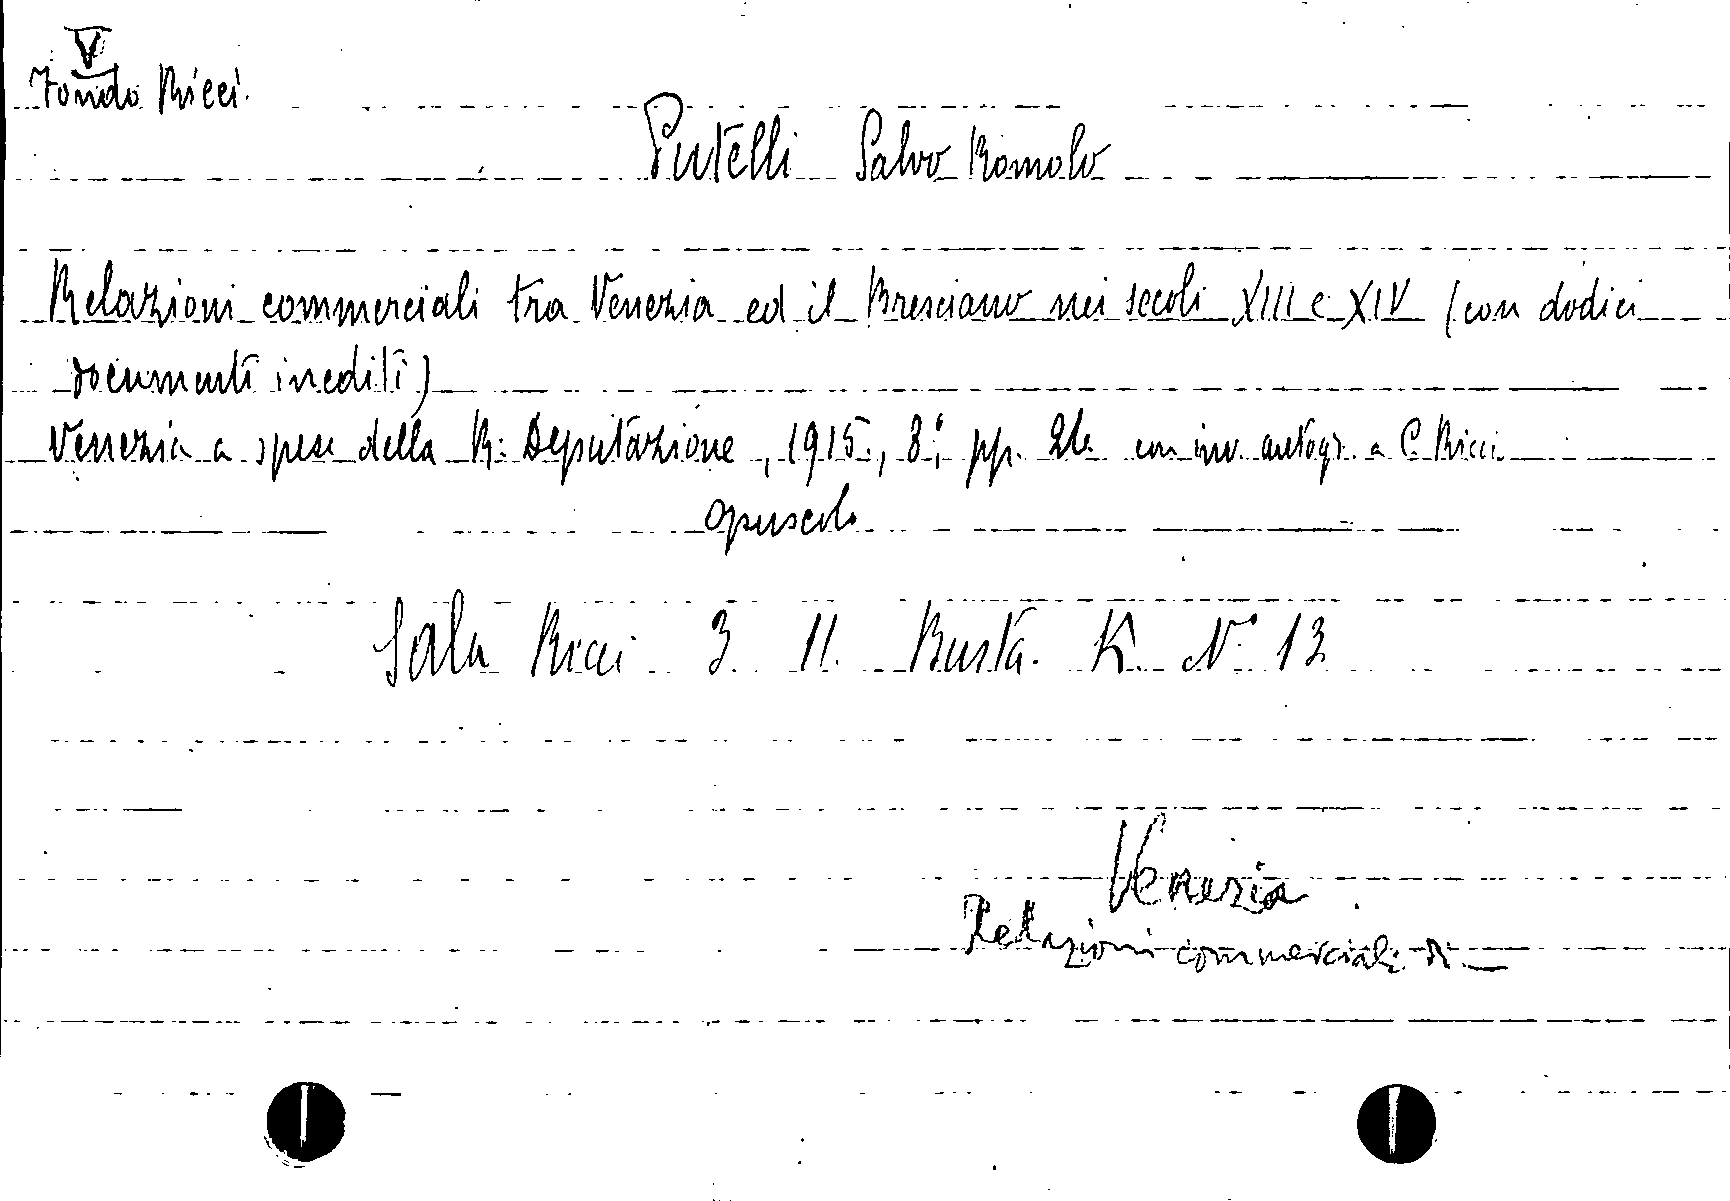 V
Fondo Ricci.
Putelli Salvo Romolo
Relazioni commerciali tra Venezia ed il Bresciano nei secoli XIII e XIV (con dodici
documenti inediti)
Venezia a spese della R. Deputazione, 1915, 8°, pp. con inv. autogr. a C. Ricci
opuscolo
Sala Ricci 3 11. Busta. K N° 13
Venezia
Relazioni commerciali di —